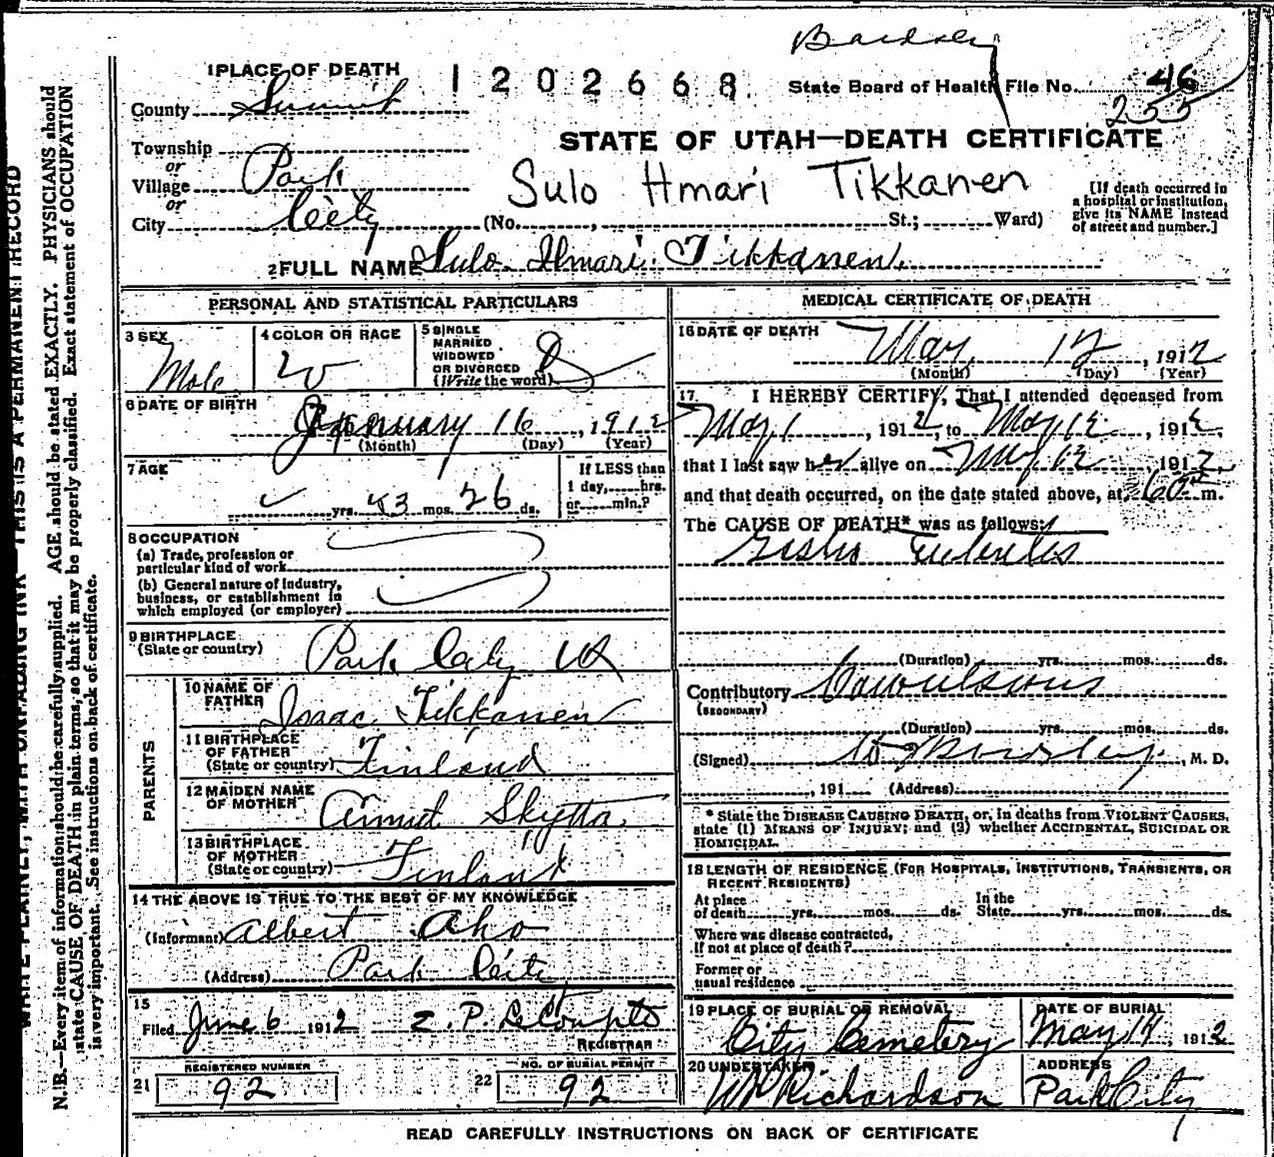 Bardsley
1 PLACE OF DEATH 1202668 State Board of Health File No. 46
255
County Summit
STATE OF UTAH—DEATH CERTIFICATE
Township
or
Village Park
or
City City
Sulo Hmari Tikkanen
(No. , St.; Ward)
[If death occurred in
a hospital or institution,
give its NAME instead
of street and number.]
2 FULL NAME Sulo Ilmari Tikkanen.
PERSONAL AND STATISTICAL PARTICULARS
3 SEX
Male
4 COLOR OR RACE
W
5 SINGLE
MARRIED
WIDOWED
OR DIVORCED
(Write the word) S
6 DATE OF BIRTH
January 16, 1912
(Month) (Day) (Year)
7 AGE
yrs. 3 mos. 26 ds.
If LESS than
1 day, hrs.
or min.?
8 OCCUPATION
(a) Trade, profession or
particular kind of work
(b) General nature of industry,
business, or establishment in
which employed (or employer)
9 BIRTHPLACE
(State or country) Park City Ut
PARENTS
10 NAME OF
FATHER Isaac Tikkanen
11 BIRTHPLACE
OF FATHER
(State or country) Finland
12 MAIDEN NAME
OF MOTHER Skytta
13 BIRTHPLACE
OF MOTHER
(State or country) Finland
14 THE ABOVE IS TRUE TO THE BEST OF MY KNOWLEDGE
(Informant) Albert Aho
(Address) Park City
15
Filed June 6 1912
REGISTRAR
21 REGISTERED NUMBER
92
22 NO. OF BURIAL PERMIT
92
MEDICAL CERTIFICATE OF DEATH
16 DATE OF DEATH
May 12, 1912
(Month) (Day) (Year)
17 I HEREBY CERTIFY, That I attended deceased from
May 1, 1912, to May 12, 1912,
that I last saw her alive on May 12, 1912,
and that death occurred, on the date stated above, at m.
The CAUSE OF DEATH* was as follows:
Gastro Enteritis
(Duration) yrs. mos. ds.
Contributory Convulsions
(SECONDARY)
(Duration) yrs. mos. ds.
(Signed) Bardsley, M. D.
, 191 (Address)
* State the DISEASE CAUSING DEATH, or, in deaths from VIOLENT CAUSES,
state (1) MEANS OF INJURY; and (2) whether ACCIDENTAL, SUICIDAL OR
HOMICIDAL.
18 LENGTH OF RESIDENCE (FOR HOSPITALS, INSTITUTIONS, TRANSIENTS, OR
RECENT RESIDENTS)
At place
of death yrs. mos. ds.
In the
State yrs. mos. ds.
Where was disease contracted,
If not at place of death?
Former or
usual residence
19 PLACE OF BURIAL OR REMOVAL
City Cemetery
DATE OF BURIAL
May 14, 1912
20 UNDERTAKER
W Richardson
ADDRESS
Park City
READ CAREFULLY INSTRUCTIONS ON BACK OF CERTIFICATE
WRITE PLAINLY, WITH UNFADING INK—THIS IS A PERMANENT RECORD
N. B.—Every item of information should be carefully supplied. AGE should be stated EXACTLY. PHYSICIANS should
state CAUSE OF DEATH in plain terms, so that it may be properly classified. Exact statement of OCCUPATION
is very important. See instructions on back of certificate.